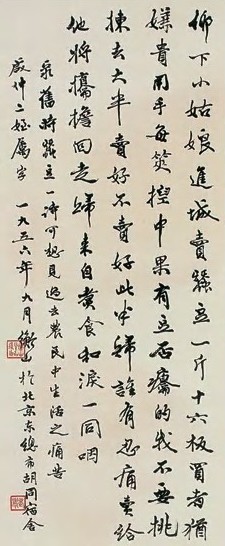 鄉下小姑娘進城賣蠶豆一斤十六板買者猶
嫌貴用手每筴控中果有豆否癟的我不要挑
揀去大半賣好不賣好此中歸誰有忍痛賣給
他將攜擔回走歸來自煮食和淚一同咽
舊時蠶豆一詩可想見過去農民中生活之痛苦
二姪屬字 一九五六年九月 於北京東總布胡同宿舍